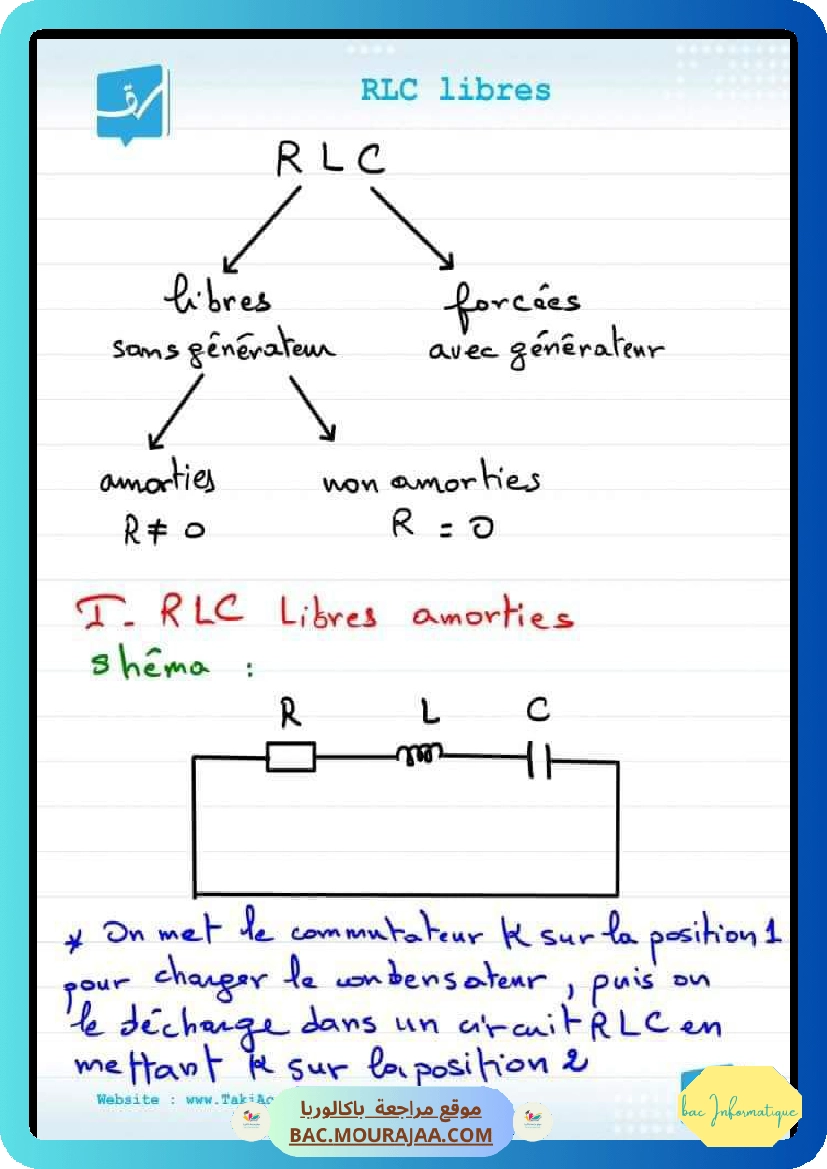 RLC libres
R L C
libres forcées
sans générateur avec générateur
amorties non amorties
R ≠ 0 R = 0
I. RLC Libres amorties
shéma :
R L C
* On met le commutateur K sur la position 1
pour charger le condensateur, puis on
le décharge dans un circuit RLC en
mettant K sur la position 2
Website : www.TakiAc
موقع مراجعة باكالوريا
BAC.MOURAJAA.COM
bac Informatique